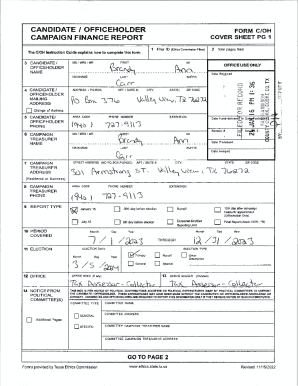 CANDIDATE / OFFICEHOLDER
CAMPAIGN FINANCE REPORT
FORM C/OH
COVER SHEET PG 1
The C/OH Instruction Guide explains how to complete this form.
1 Filer ID (Ethics Commission Filers)
2 Total pages filed:
3 CANDIDATE / OFFICEHOLDER NAME
MS / MRS / MR FIRST MI
Brandy Ann
NICKNAME LAST SUFFIX
Carr
OFFICE USE ONLY
Date Received
4 CANDIDATE / OFFICEHOLDER MAILING ADDRESS
Change of Address
ADDRESS / PO BOX; APT / SUITE #; CITY; STATE; ZIP CODE
PO Box 376 Valley View, TX 76272
5 CANDIDATE/ OFFICEHOLDER PHONE
AREA CODE PHONE NUMBER EXTENSION
(940) 727-9113
6 CAMPAIGN TREASURER NAME
MS / MRS / MR FIRST MI
Brandy Ann
NICKNAME LAST SUFFIX
Carr
Receipt #
Date Processed
Date Imaged
7 CAMPAIGN TREASURER ADDRESS
(Residence or Business)
STREET ADDRESS (NO PO BOX PLEASE); APT / SUITE #; CITY; STATE; ZIP CODE
301 Armstrong St. Valley View, TX 76272
8 CAMPAIGN TREASURER PHONE
AREA CODE PHONE NUMBER EXTENSION
(940) 727-9113
9 REPORT TYPE
January 15
30th day before election
Runoff
15th day after campaign treasurer appointment (Officeholder Only)
July 15
8th day before election
Exceeded Modified Reporting Limit
Final Report (Attach C/OH - FR)
10 PERIOD COVERED
Month Day Year
7 / 1 / 2023 THROUGH 12 / 31 / 2023
11 ELECTION
ELECTION DATE
ELECTION TYPE
Month Day Year
3 / 5 / 2024
Primary
Runoff
Other Description
General
Special
12 OFFICE
OFFICE HELD (if any)
Tax Assessor-Collector
13 OFFICE SOUGHT (if known)
Tax Assessor-Collector
14 NOTICE FROM POLITICAL COMMITTEE(S)
COMMITTEE TYPE
COMMITTEE NAME
GENERAL
COMMITTEE ADDRESS
Additional Pages
SPECIFIC
COMMITTEE CAMPAIGN TREASURER NAME
COMMITTEE CAMPAIGN TREASURER ADDRESS
GO TO PAGE 2
Forms provided by Texas Ethics Commission
www.ethics.state.tx.us
Revised 11/15/2022